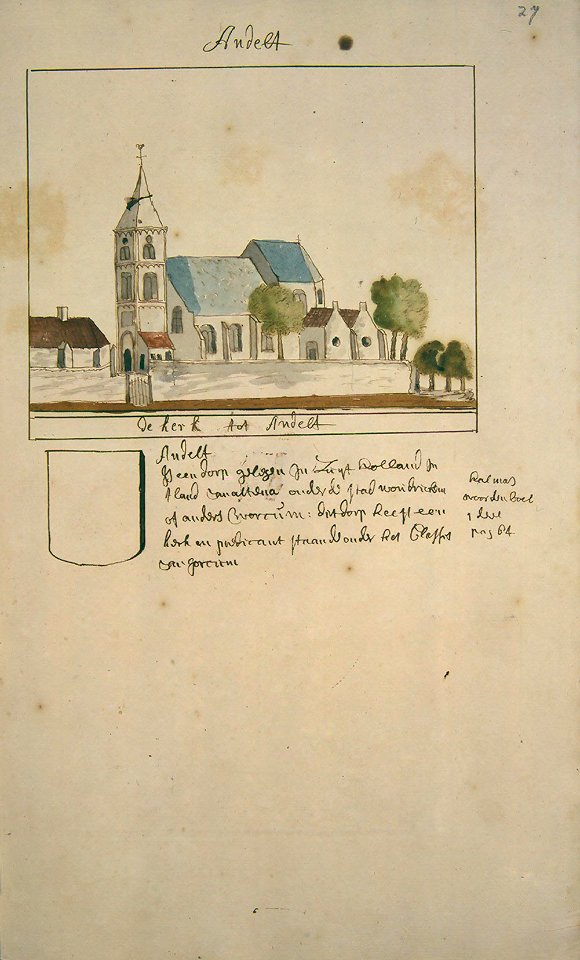 27
Andelt
De kerk tot Andelt
Andelt
Is een dorp gelegen In Zuyt Holland In
't land van altena onder de stad woudrichem
of anders Worcum: dit dorp heeft een
kerk en predicant staande onder het Classis
van gorcum
Halmas
woordenboek
1 deel
pag 64